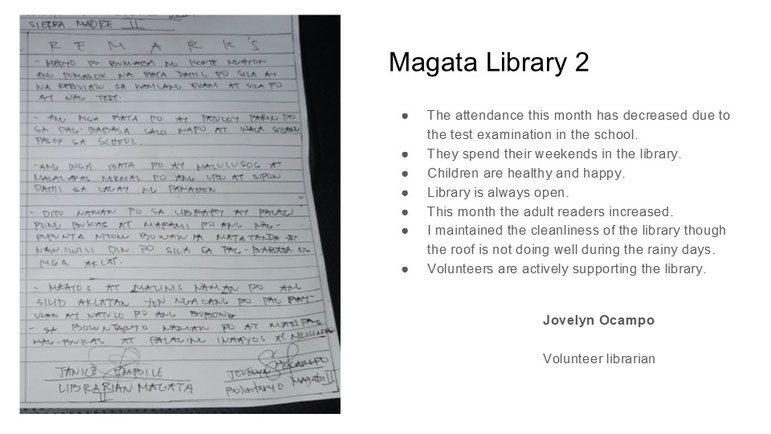 SIERRA MADRE II
REMARK'S
- MEDYO PO BUMABA NG KONTE NGAYON
ANG PUMASOK NA BATA DAHIL PO SILA AY
NA REBUIEW SA KANILANG EXAM AT SILA PO
AY NAG TEST.
- ANG MGA BATA PO AY PATULOY PARIN PO
SA PAG-BABASA LALO NAPO AT WALA SILANG
PASOK SA SCHOOL.
- ANG MGA BATA PO AY MALULUSOG AT
MALALAKAS NORMAL PO ANG UBO AT SIPON
DAHIL SA LAGAY NG PANAHON
- DITO NAMAN PO SA LIBRARY AY PALAGI
PONG BUKAS AT MARAMI PO ANG NAG-
PUNTA NITONG BUWAN NA MATATANDA AT
NAWIWILI DIN PO SILA SA PAG-BABASA NG
MGA AKLAT.
- MAAYOS AT MALINIS NAMAN PO ANG
SILID AKLATAN YON NGA LANG PO PAG
ULAN AY NATULO PO ANG BUBONG
- SA BOLUNTARYO NAMAN PO AY
MAG-BUKAS AT PALAGING INAAYOS AT
JANICE
LIBRARIAN MAGATA
II
JOVELYN OCAMPO
Boluntaryo Magata II
Magata Library 2
● The attendance this month has decreased due to
the test examination in the school.
● They spend their weekends in the library.
● Children are healthy and happy.
● Library is always open.
● This month the adult readers increased.
● I maintained the cleanliness of the library though
the roof is not doing well during the rainy days.
● Volunteers are actively supporting the library.
Jovelyn Ocampo
Volunteer librarian